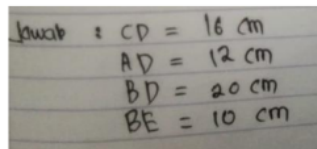 Jawab : CD = 16 cm
AD = 12 cm
BD = 20 cm
BE = 10 cm